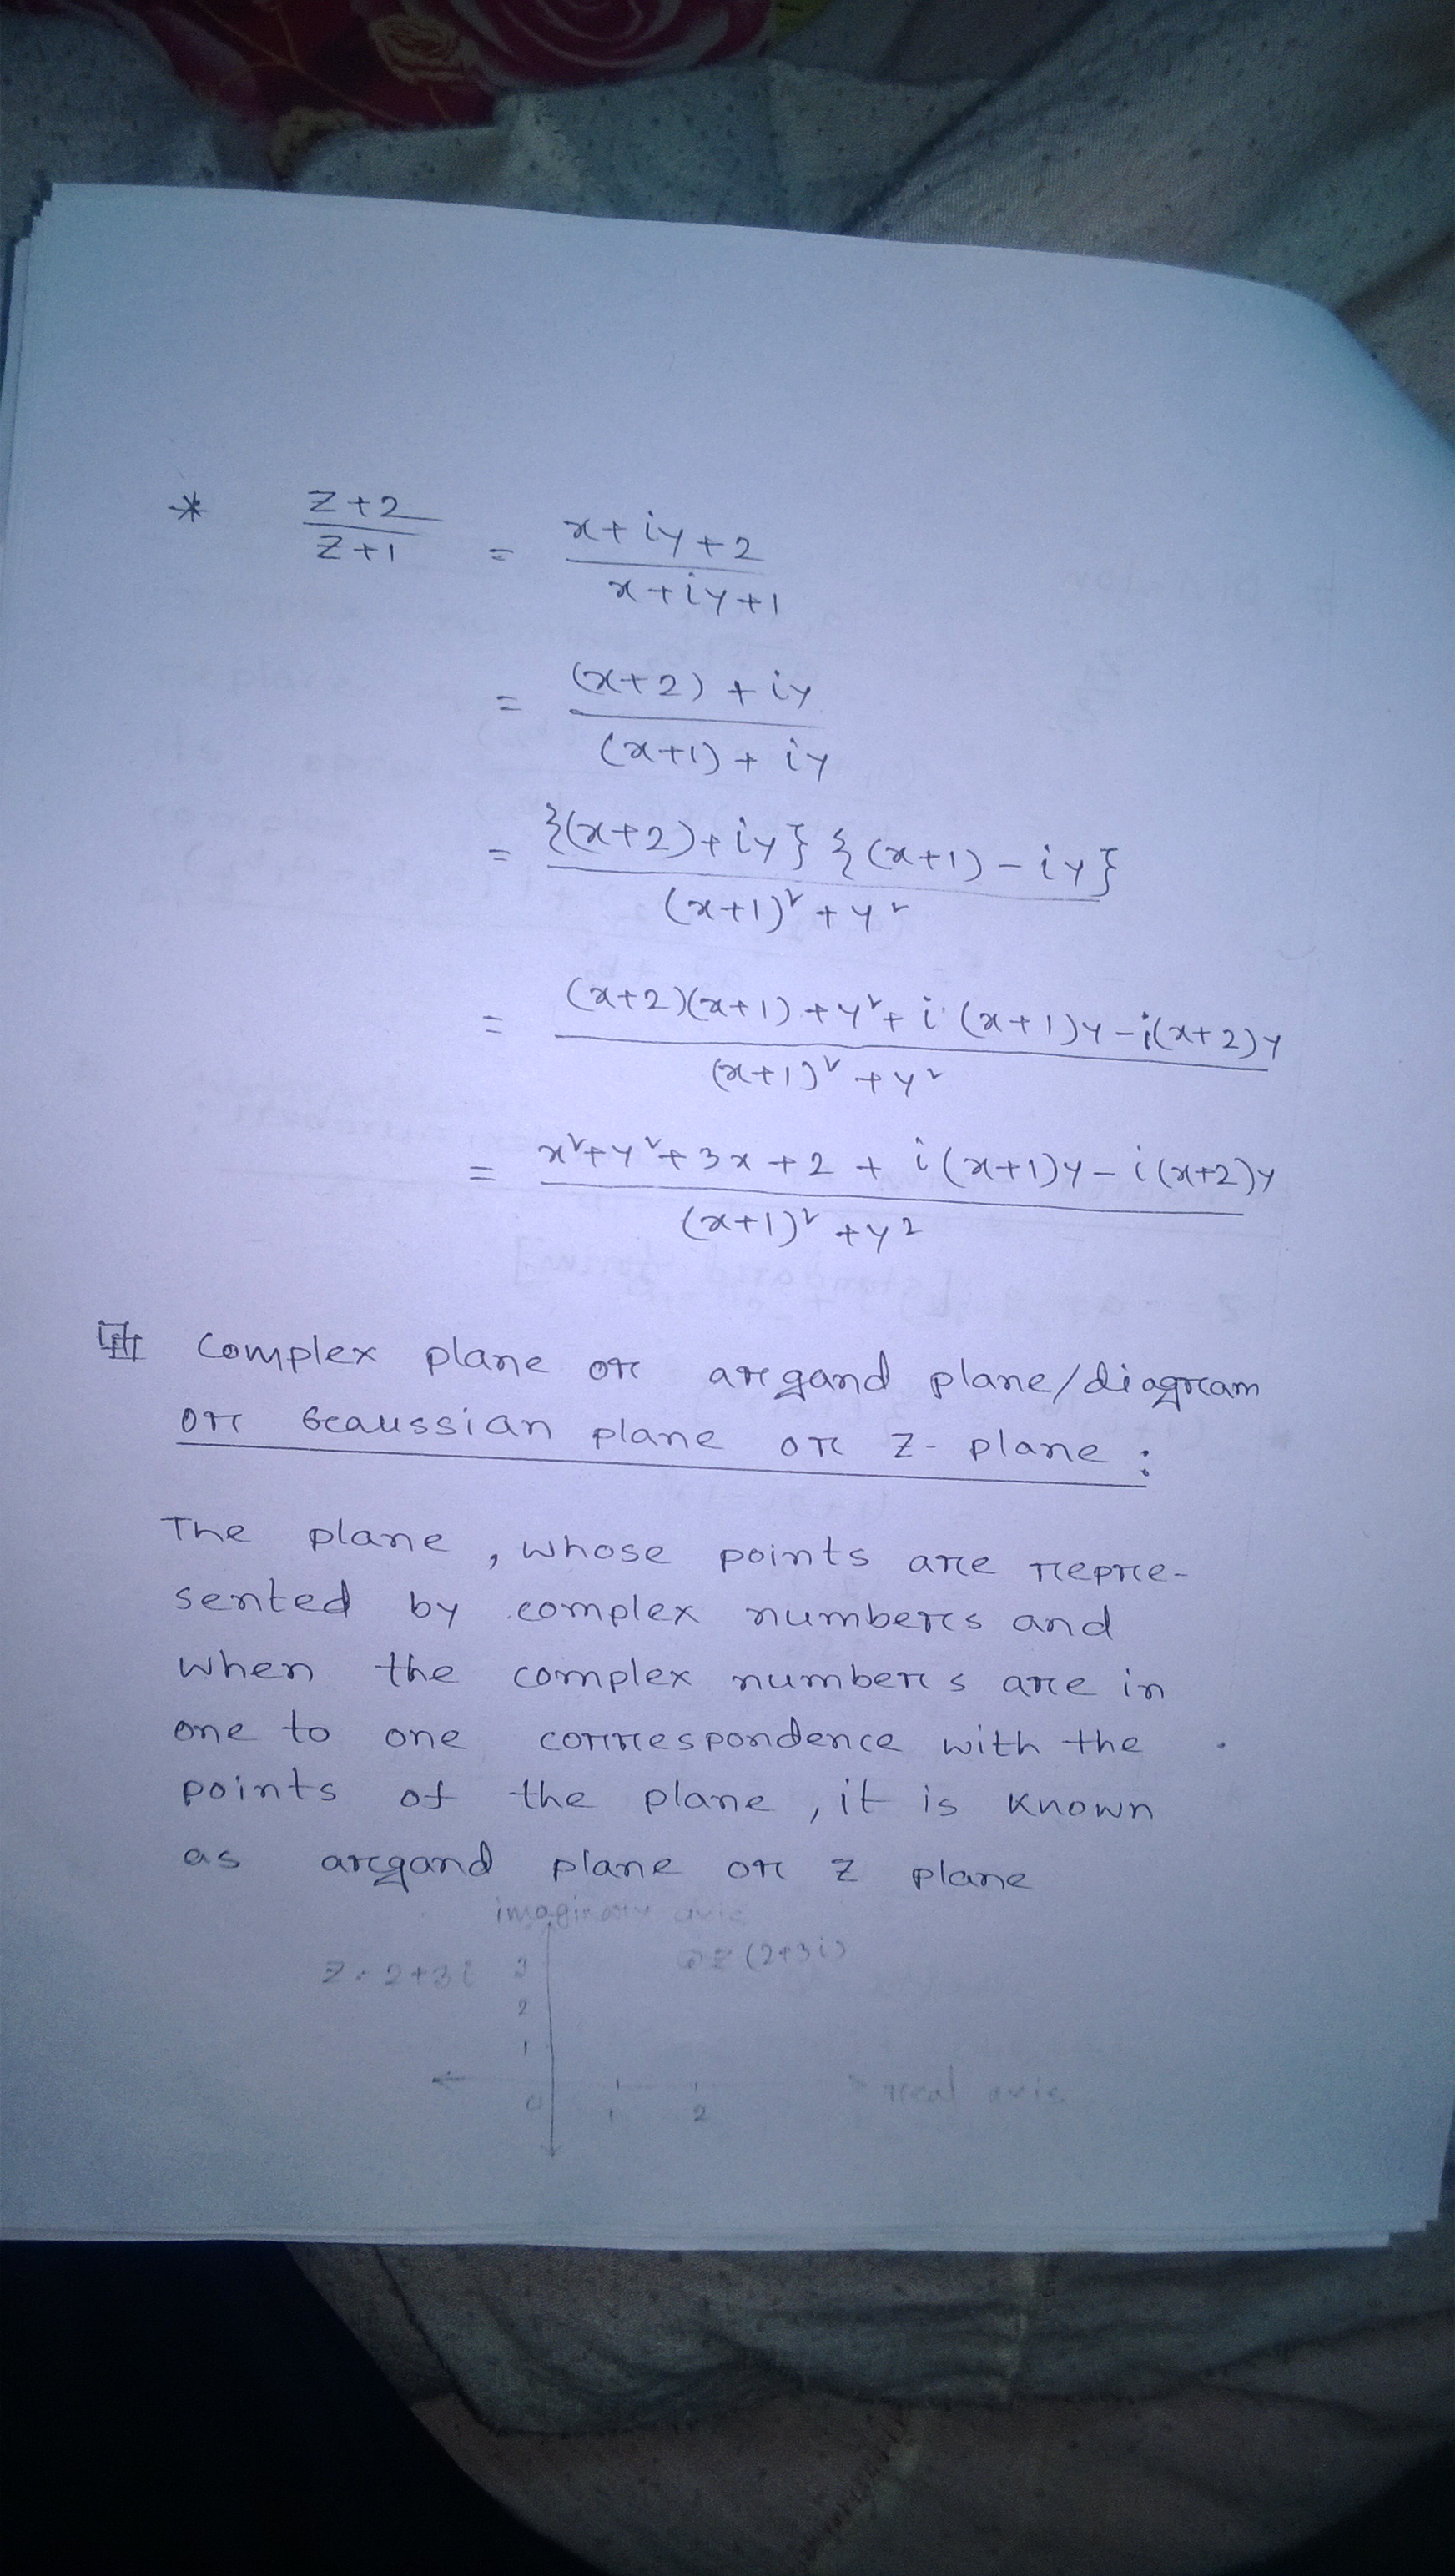 * z+2 / z+1 = x+iy+2 / x+iy+1
= (x+2)+iy / (x+1)+iy
= {(x+2)+iy} {(x+1)-iy} / (x+1)²+y²
= (x+2)(x+1)+y²+i(x+1)y-i(x+2)y / (x+1)²+y²
= x²+y²+3x+2+i(x+1)y-i(x+2)y / (x+1)²+y²
Complex plane or argand plane/diagram
or Gaussian plane or z-plane:
The plane, whose points are repre-
sented by complex numbers and
when the complex numbers are in
one to one correspondence with the
points of the plane, it is known
as argand plane or z plane
imaginary axis
z=2+3i 3 z(2+3i)
2
1
real axis
0 1 2